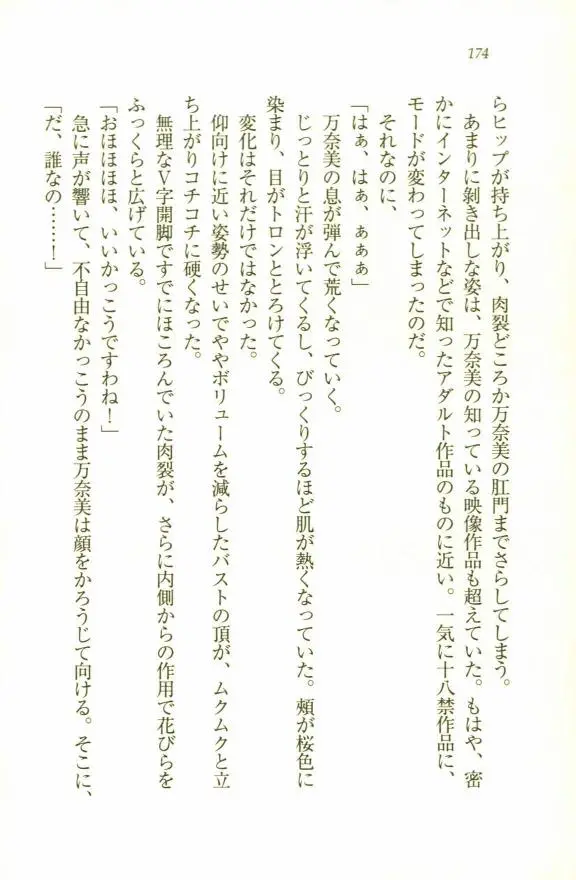 174
らヒップが持ち上がり、肉裂どころか万奈美の肛門までさらしてしまう。
あまりに剝き出しな姿は、万奈美の知っている映像作品も超えていた。もはや、密
かにインターネットなどで知ったアダルト作品のものに近い。一気に十八禁作品に、
モードが変わってしまったのだ。
それなのに、
「はぁ、はぁ、あぁぁ」
万奈美の息が弾んで荒くなっていく。
じっとりと汗が浮いてくるし、びっくりするほど肌が熱くなっていた。頰が桜色に
染まり、目がトロンととろけてくる。
変化はそれだけではなかった。
仰向けに近い姿勢のせいでややボリュームを減らしたバストの頂が、ムクムクと立
ち上がりコチコチに硬くなった。
無理なV字開脚ですでにほころんでいた肉裂が、さらに内側からの作用で花びらを
ふっくらと広げている。
「おほほほ、いいかっこうですわね!」
急に声が響いて、不自由なかっこうのまま万奈美は顔をかろうじて向ける。そこに、
「だ、誰なの……!」